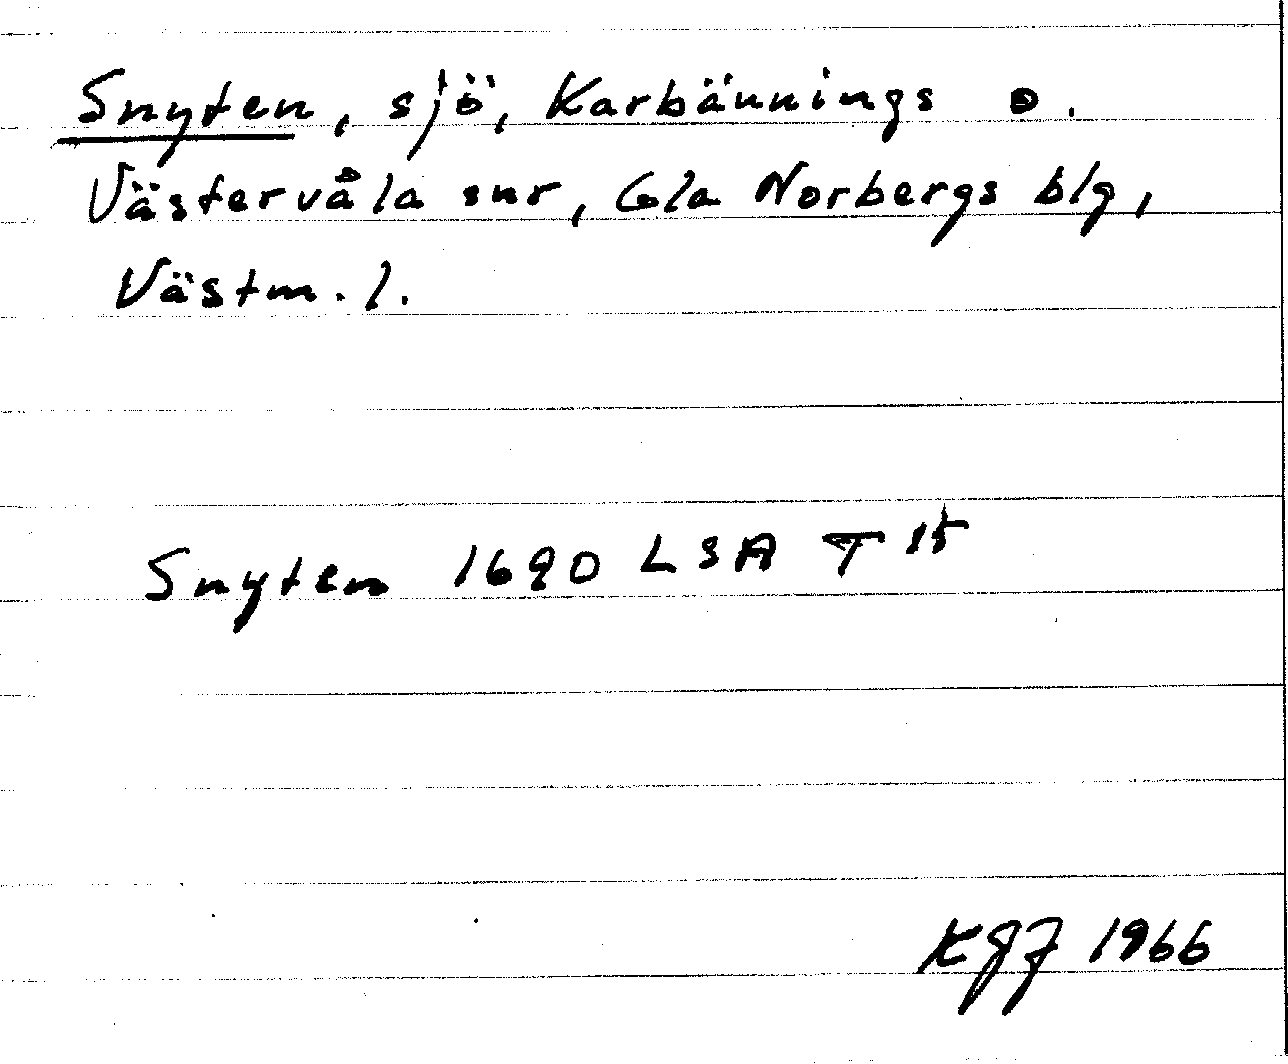 Snyten, sjö, Karbännings o.
Västervåla snr, Gla Norbergs blg,
Västm. l.
Snyten 1690 LSA T 15
KGJ 1966